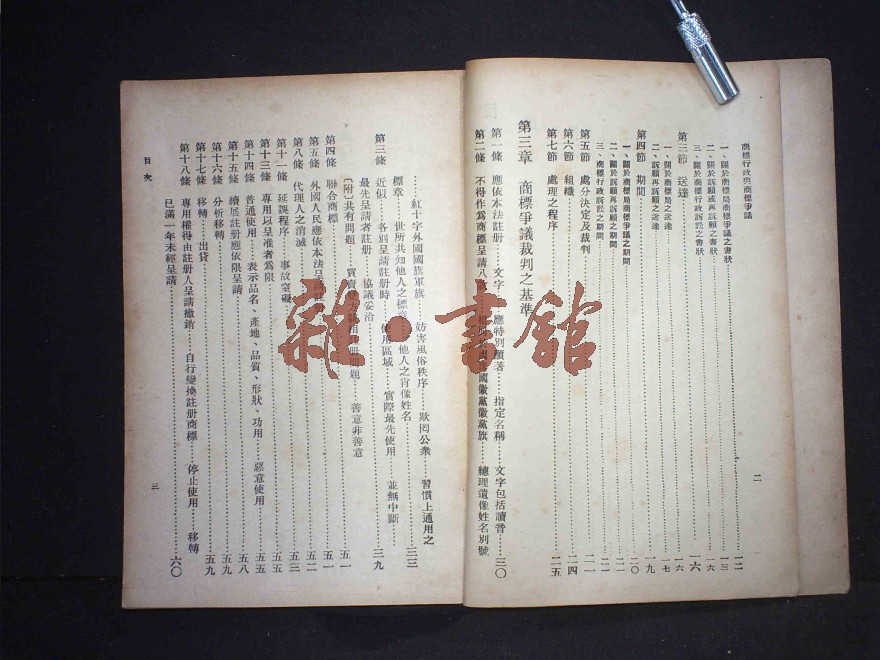 商標行政與商標爭議
一、關於商標局商標爭議之書狀……一二
二、關於訴願或再訴願之書狀……一三
三、關於商標行政訴訟之書狀……一六
第三節 送達……一六
一、關於商標局商標爭議之送達……一六
二、訴願再訴願之送達……一七
第四節 期間……一九
一、關於商標局商標爭議之期間……二〇
二、訴願再訴願之期間……二一
三、商標行政訴訟之期間……二一
第五節 處分決定及裁判……二一
第六節 組織……二四
第七節 處理之程序……二五
第三章 商標爭議裁判之基準
第一條 應依本法註册……文字……應特別顯著……指定名稱……文字包括讀音……三〇
第二條 不得作爲商標呈請八……國徽黨徽黨旗……總理遺像姓名別號
二
……紅十字外國國旗軍旗……妨害風俗秩序……欺罔公衆……習慣上通用之
標章……世所共知他人之標章……他人之肖像姓名……三三
第三條 近似……各別呈請註册時……使用區域……實際最先使用……並無中斷……
最先呈請者註册……協議妥洽……三九
〔附〕共有問題……買賣……問題……善意非善意
第四條 聯合商標……五一
第五條 外國人民應依本法呈請……五一
第八條 代理人之消滅……五二
第十一條 延誤程序……事故窒礙……五三
第十三條 專用以呈准者爲限……五五
第十四條 普通使用……表示品名、產地、品質、形狀、功用……惡意使用……五五
第十五條 續展註册應依限呈請……五八
第十六條 分析移轉……五九
第十七條 移轉……出貸……五九
第十八條 專用權得由註册人呈請撤銷……自行變換註册商標……停止使用……移轉
已滿一年未經呈請……六〇
目次
三
雜·書館